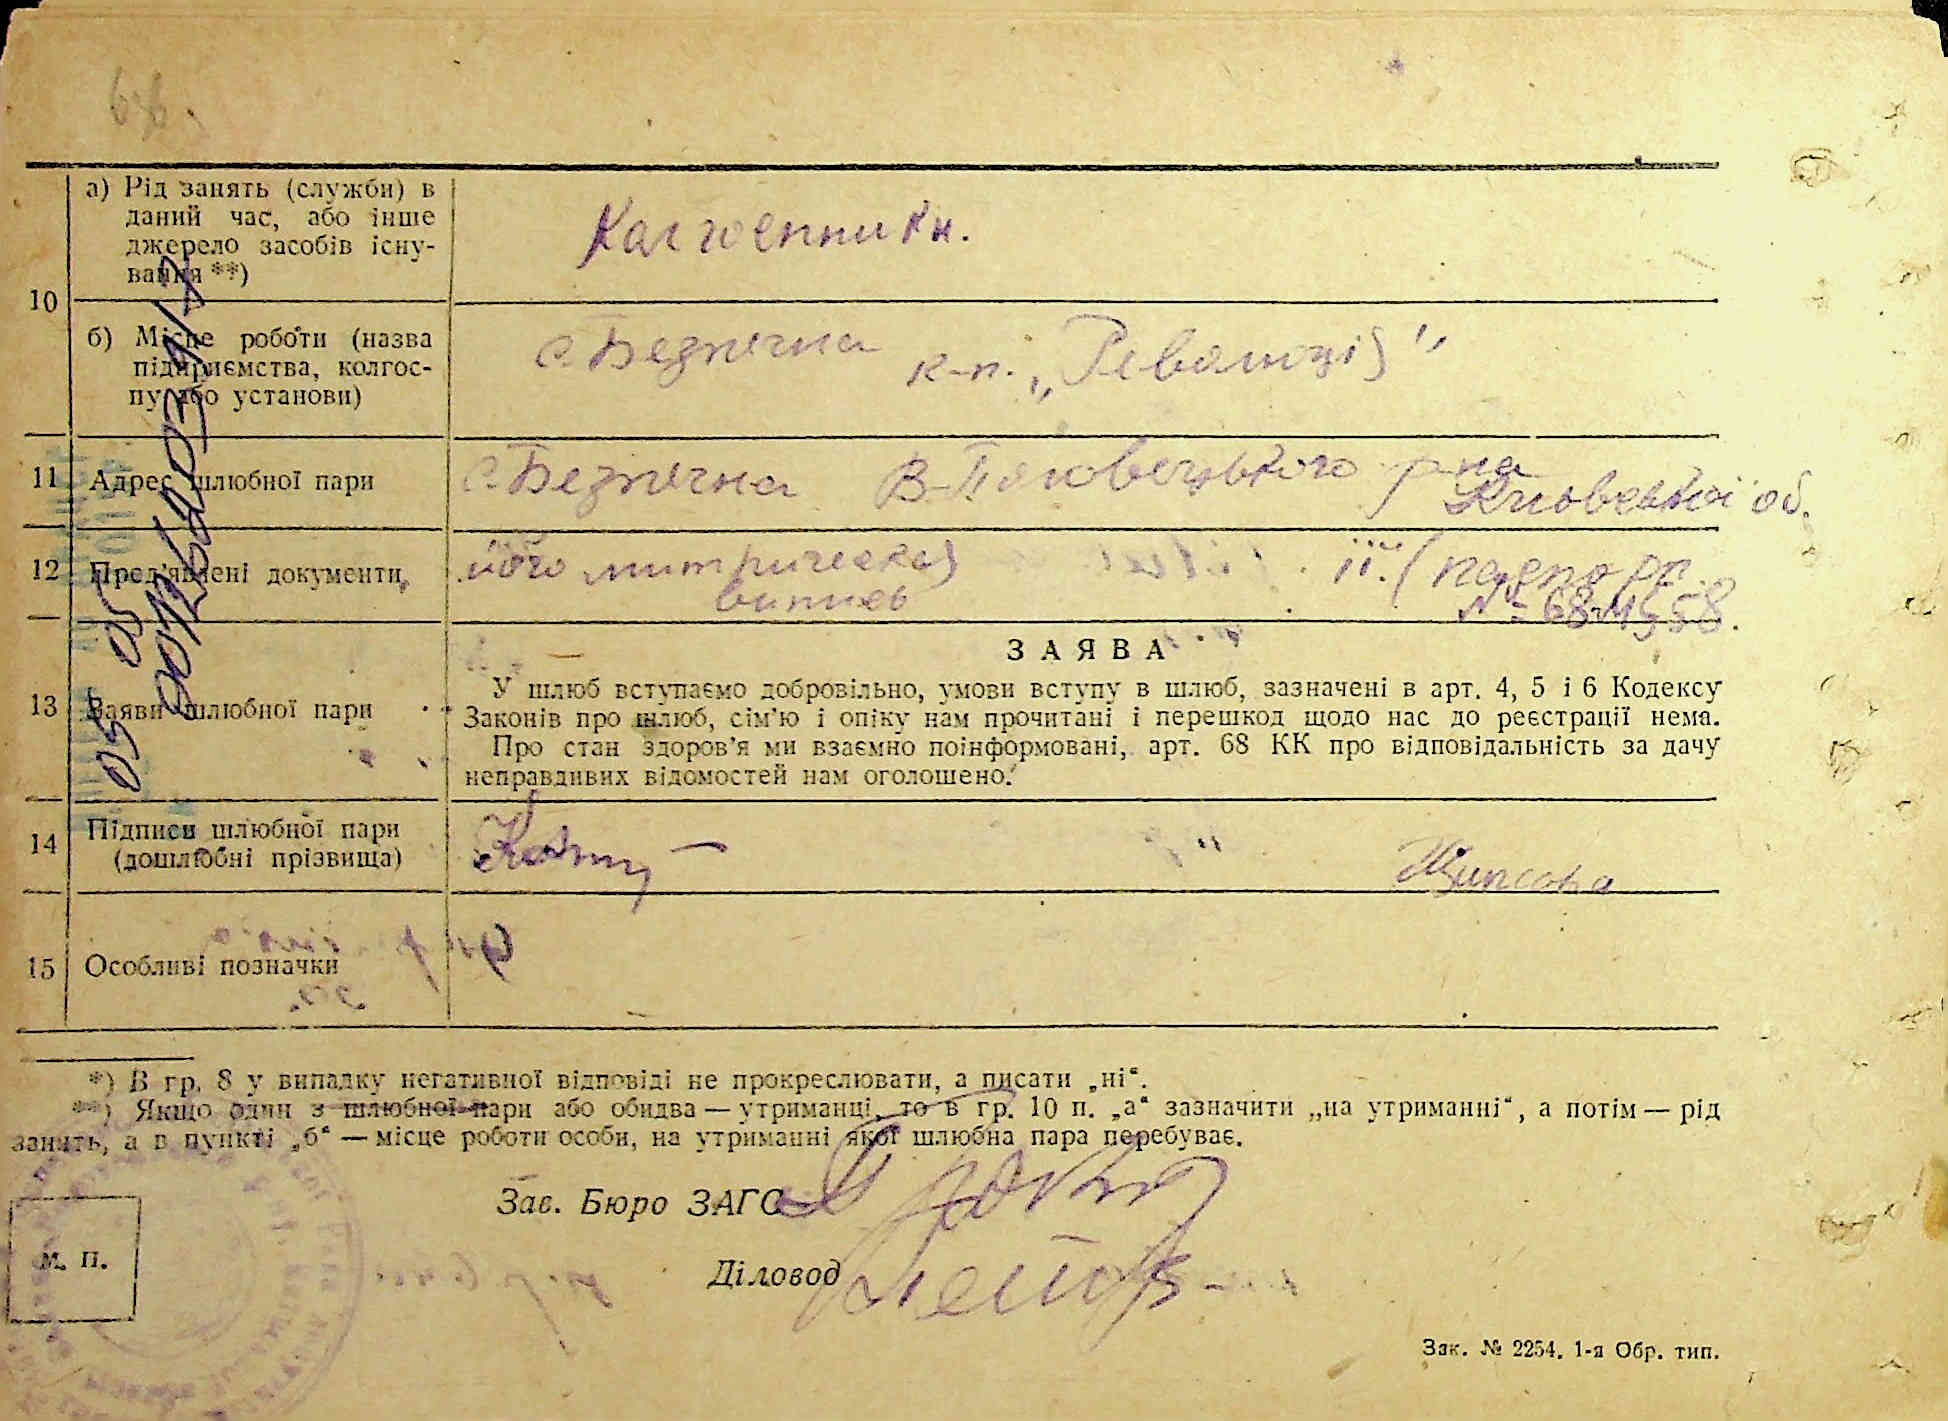 а) Рід занять (служби) в
даний час, або інше
джерело засобів існу-
вання **)
Колгоспники.
10
б) Місце роботи (назва
підприємства, колгос-
пу або установи)
с. Безпечна к-п. „Революції"
11 Адрес шлюбної пари
с. Безпечна В-Половецького р-на
Київської об.
12 Пред'явлені документи
його митрическая її. (паспорт
випись № 68
ЗАЯВА
13 Заяви шлюбної пари
У шлюб вступаємо добровільно, умови вступу в шлюб, зазначені в арт. 4, 5 і 6 Кодексу
Законів про шлюб, сім'ю і опіку нам прочитані і перешкод щодо нас до реєстрації нема.
Про стан здоров'я ми взаємно поінформовані, арт. 68 КК про відповідальність за дачу
неправдивих відомостей нам оголошено.
14 Підписи шлюбної пари
(дошлюбні прізвища)
15 Особливі позначки
*) В гр. 8 у випадку негативної відповіді не прокреслювати, а писати „ні“.
**) Якщо один з шлюбної пари або обидва — утриманці, то в гр. 10 п. „а“ зазначити „на утриманні“, а потім — рід
занять, а в пункті „б“ — місце роботи особи, на утриманні якої шлюбна пара перебуває.
Зав. Бюро ЗАГС
М. П.
Діловод
Зак. № 2254. 1-я Обр. тип.